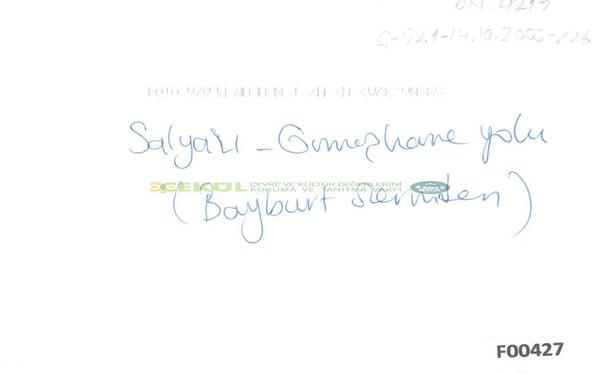 G-521-14.10.2000-226
Salyazı - Gümüşhane yolu
ÇEKÜL ÇEVRE VE KÜLTÜR DEĞERLERİNİ
KORUMA VE TANITMA VAKFI
(Bayburt üzerinden)
F00427